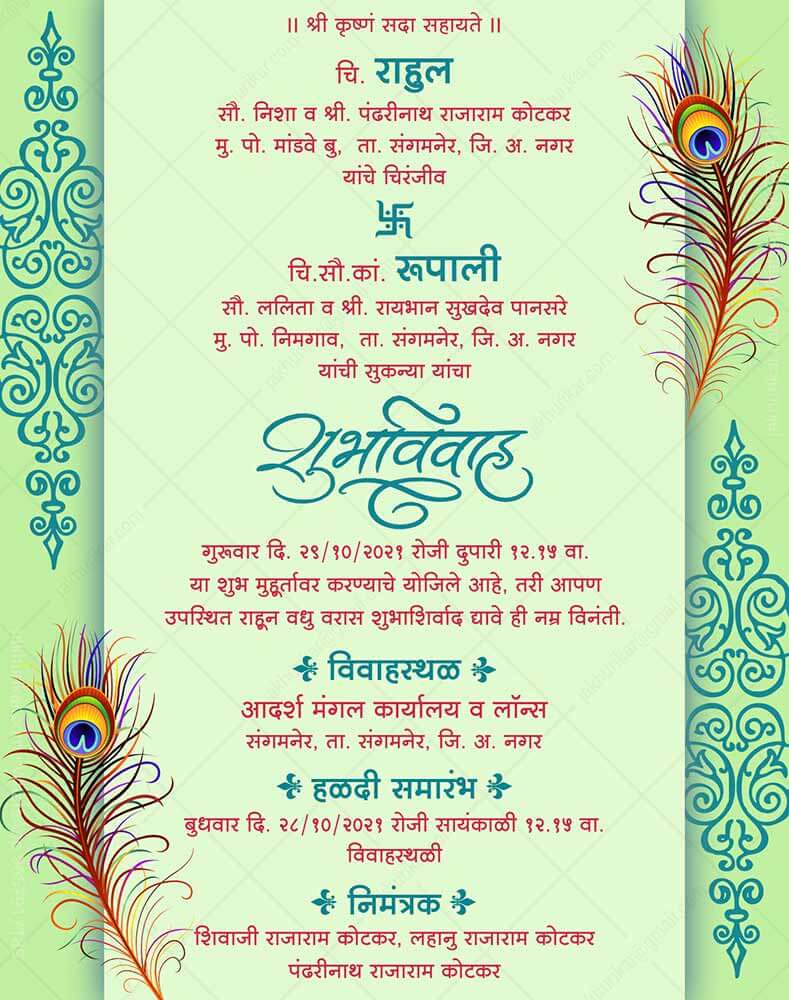 ॥ श्री कृष्णं सदा सहायते ॥
चि. राहुल
सौ. निशा व श्री. पंढरीनाथ राजाराम कोटकर
मु. पो. मांडवे बु, ता. संगमनेर, जि. अ. नगर
यांचे चिरंजीव
चि.सौ.कां. रूपाली
सौ. ललिता व श्री. रायभान सुखदेव पानसरे
मु. पो. निमगाव, ता. संगमनेर, जि. अ. नगर
यांची सुकन्या यांचा
शुभविवाह
गुरूवार दि. २९/१०/२०२१ रोजी दुपारी १२.१५ वा.
या शुभ मुहूर्तावर करण्याचे योजिले आहे, तरी आपण
उपस्थित राहून वधु वरास शुभाशिर्वाद द्यावे ही नम्र विनंती.
विवाहस्थळ
आदर्श मंगल कार्यालय व लॉन्स
संगमनेर, ता. संगमनेर, जि. अ. नगर
हळदी समारंभ
बुधवार दि. २८/१०/२०२१ रोजी सायंकाळी १२.१५ वा.
विवाहस्थळी
निमंत्रक
शिवाजी राजाराम कोटकर, लहानु राजाराम कोटकर
पंढरीनाथ राजाराम कोटकर